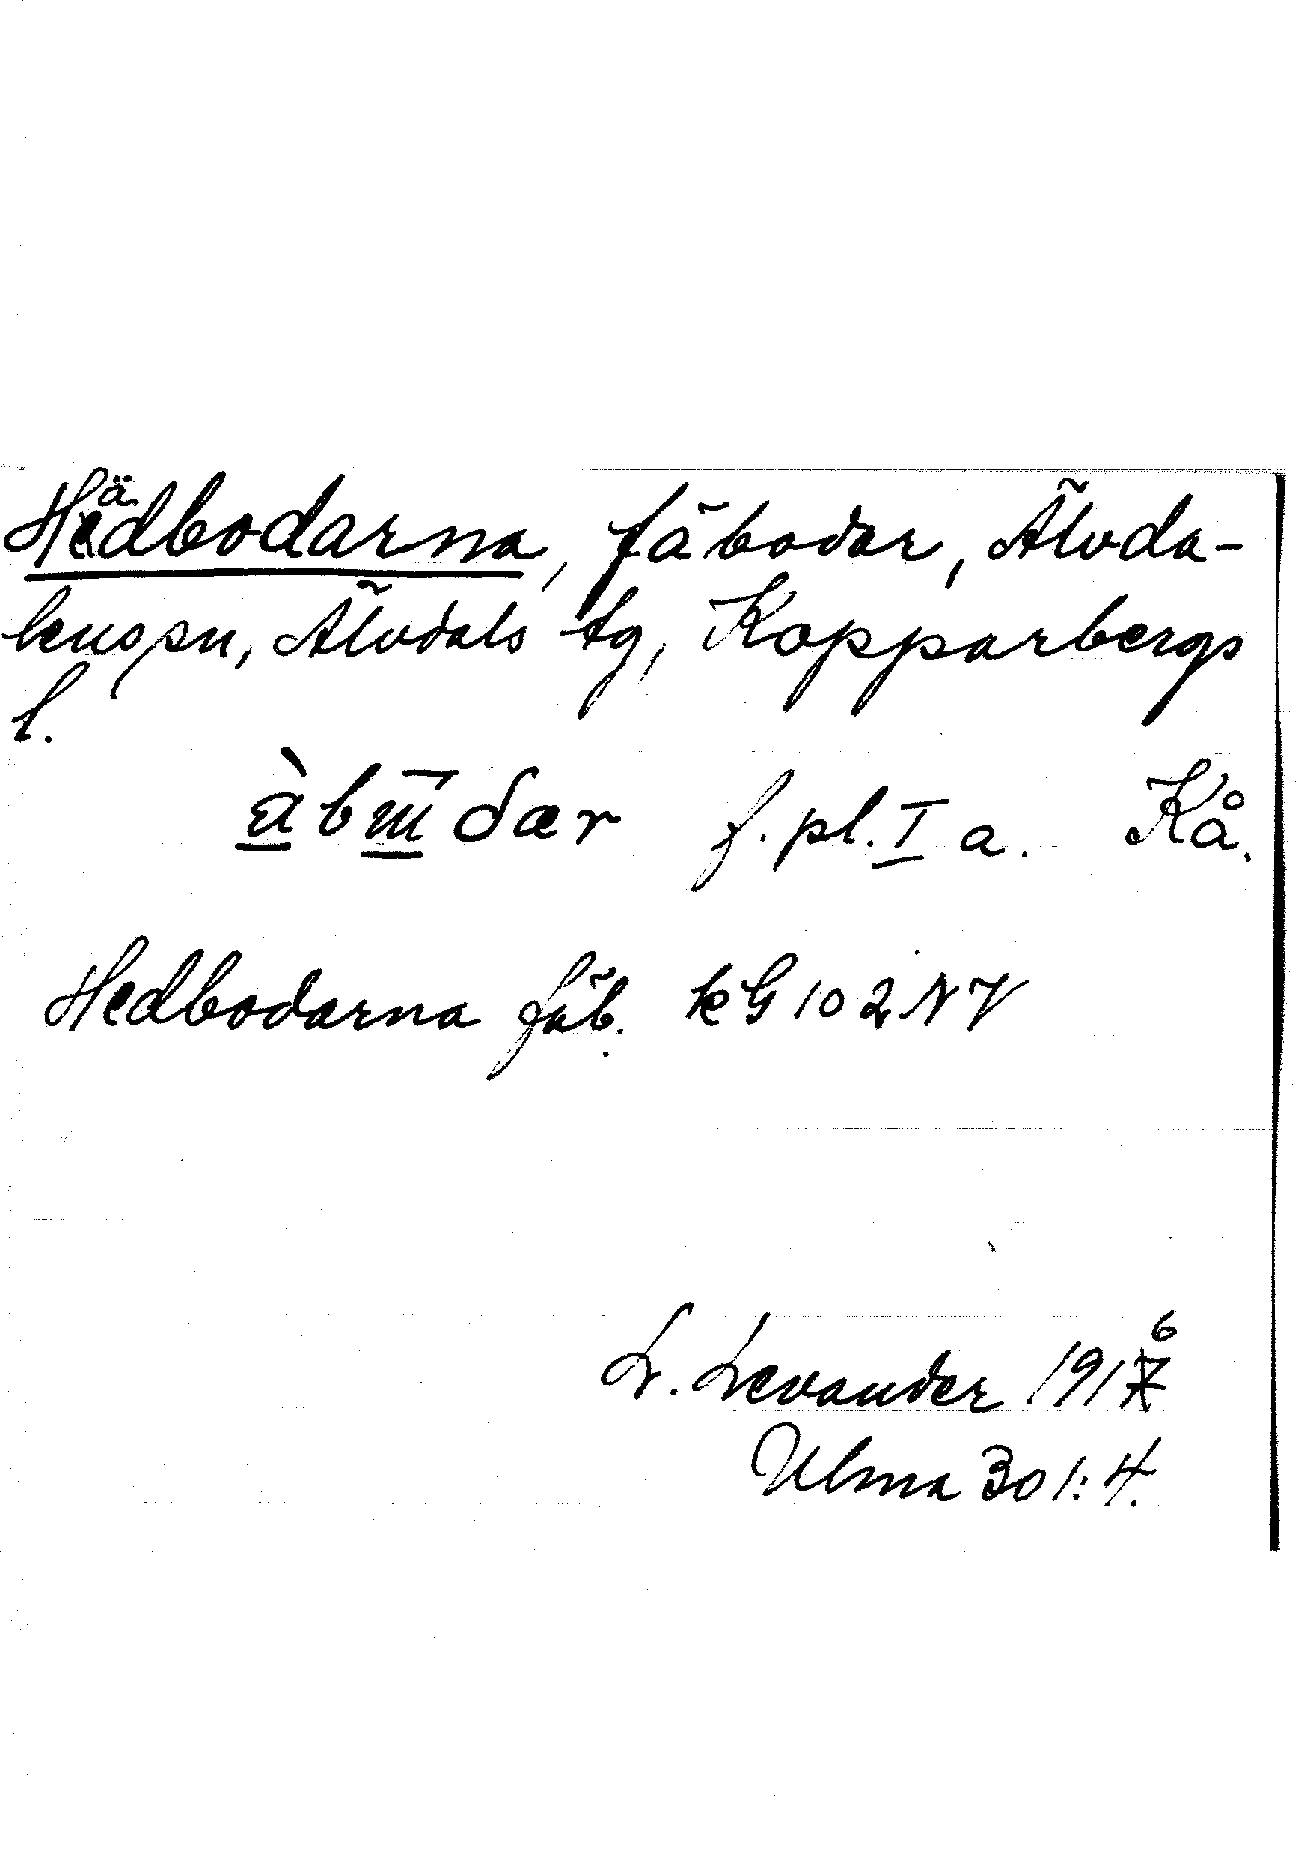 Hädbodarna, fäbodar, Älvda-
lens sn, Älvdals tg, Kopparbergs
l.
f. pl. I a. Kå.
Hedbodarna fäb. kG 102 NV
L. Levander 1916
Ulma 301:4.